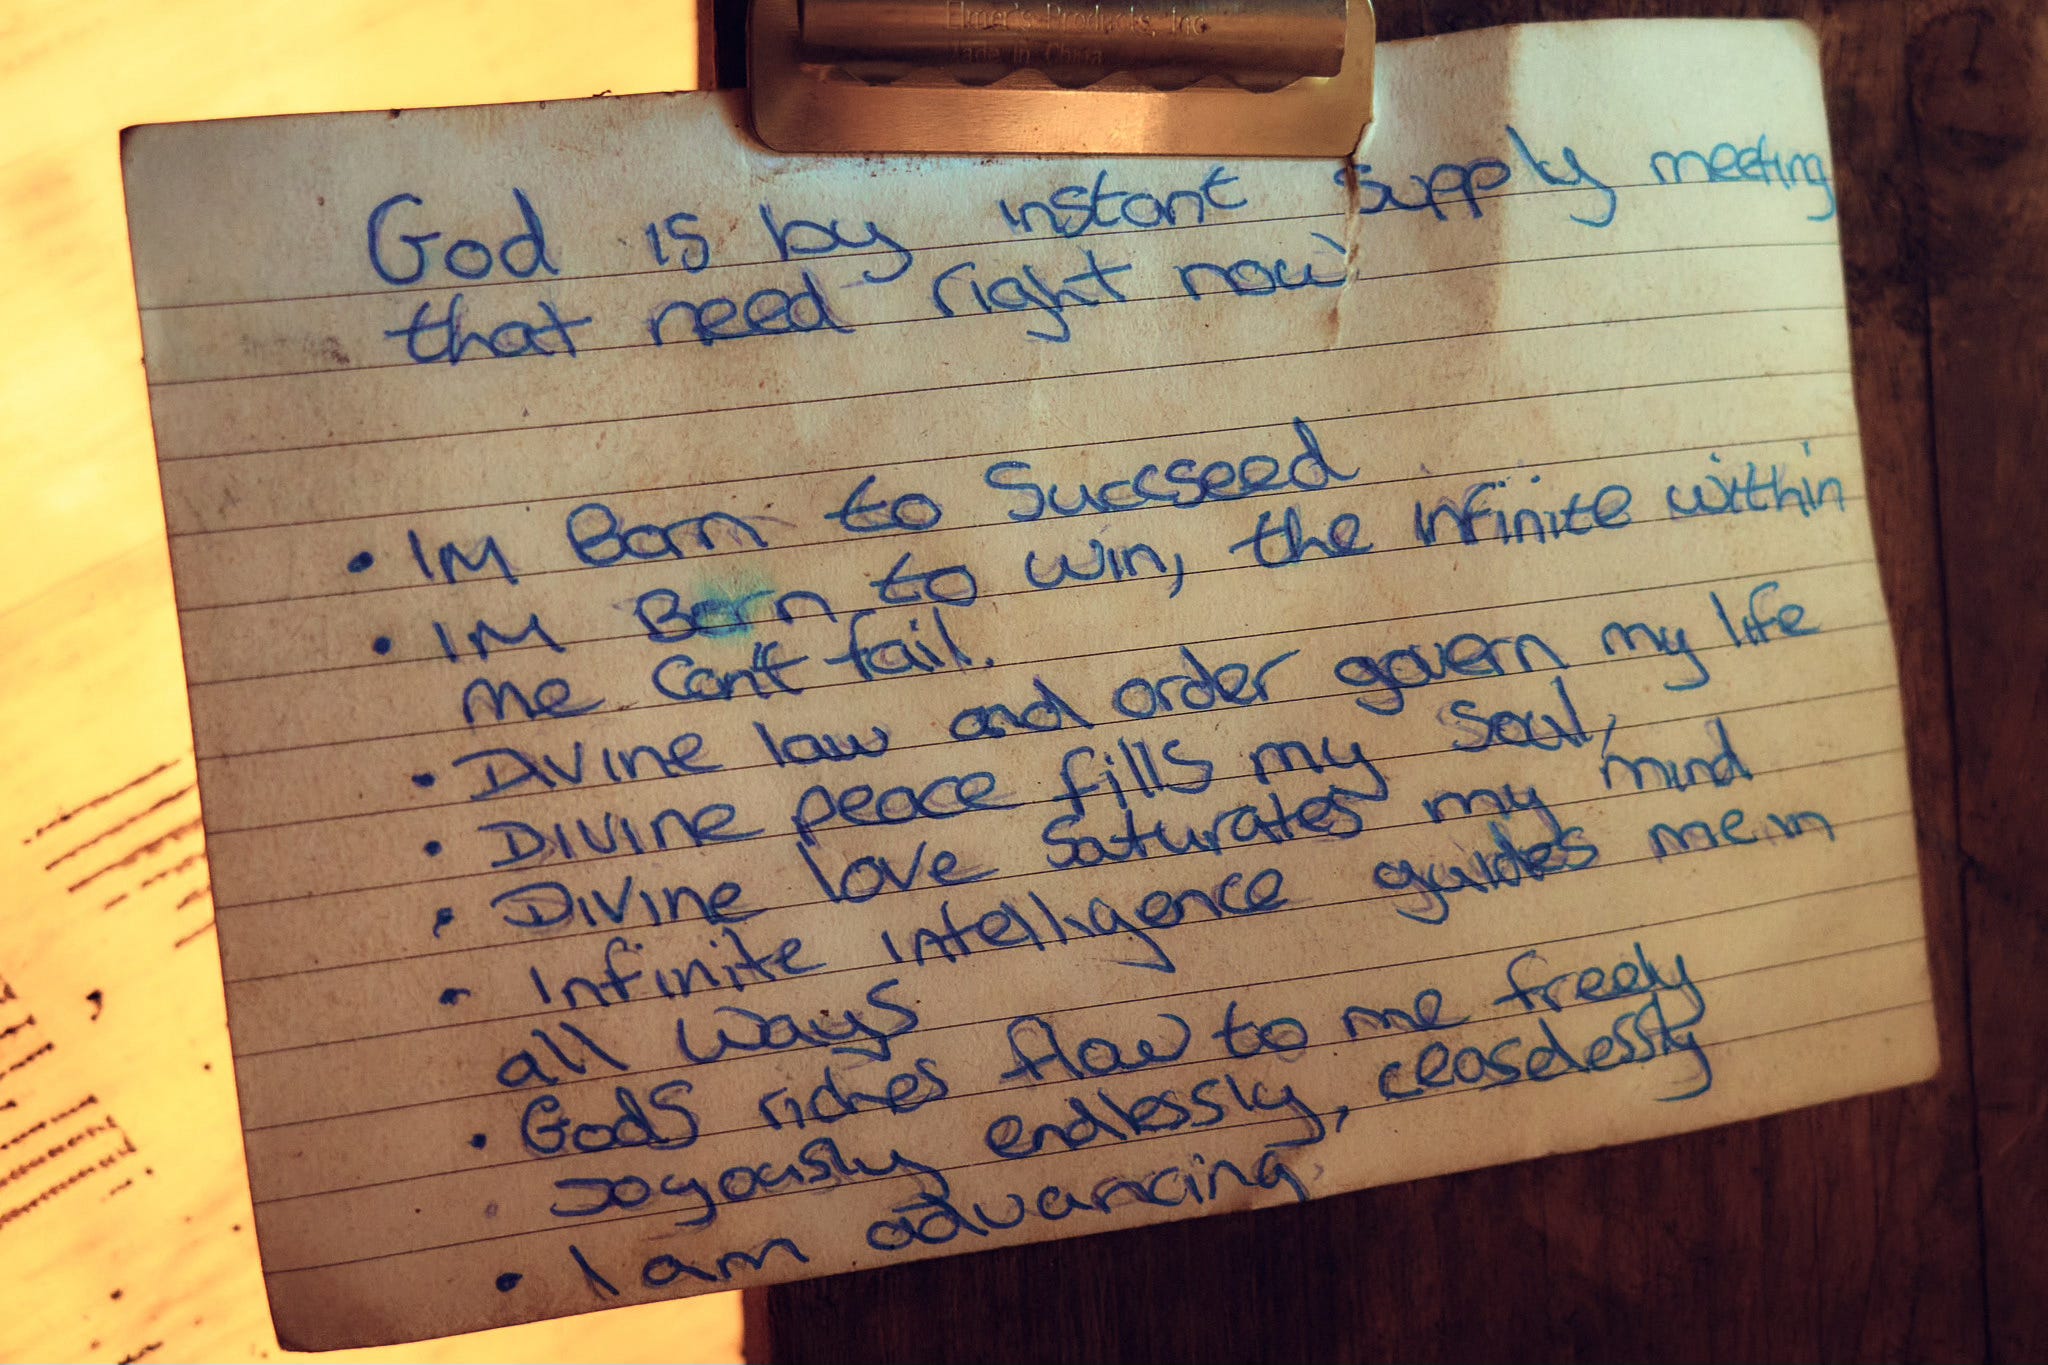 Elmer's Products, Inc
Made in China
God is by instant supply meeting
that need right now
• IM Born to Succseed
• IM Born to win, the infinite within
me can't fail.
• Divine law and order govern my life
• Divine peace fills my soul,
• Divine love saturates my mind
• Infinite intelligence guides me in
all ways
• Gods riches flow to me freely
joyously endlessly, ceasdessly
• I am advancing